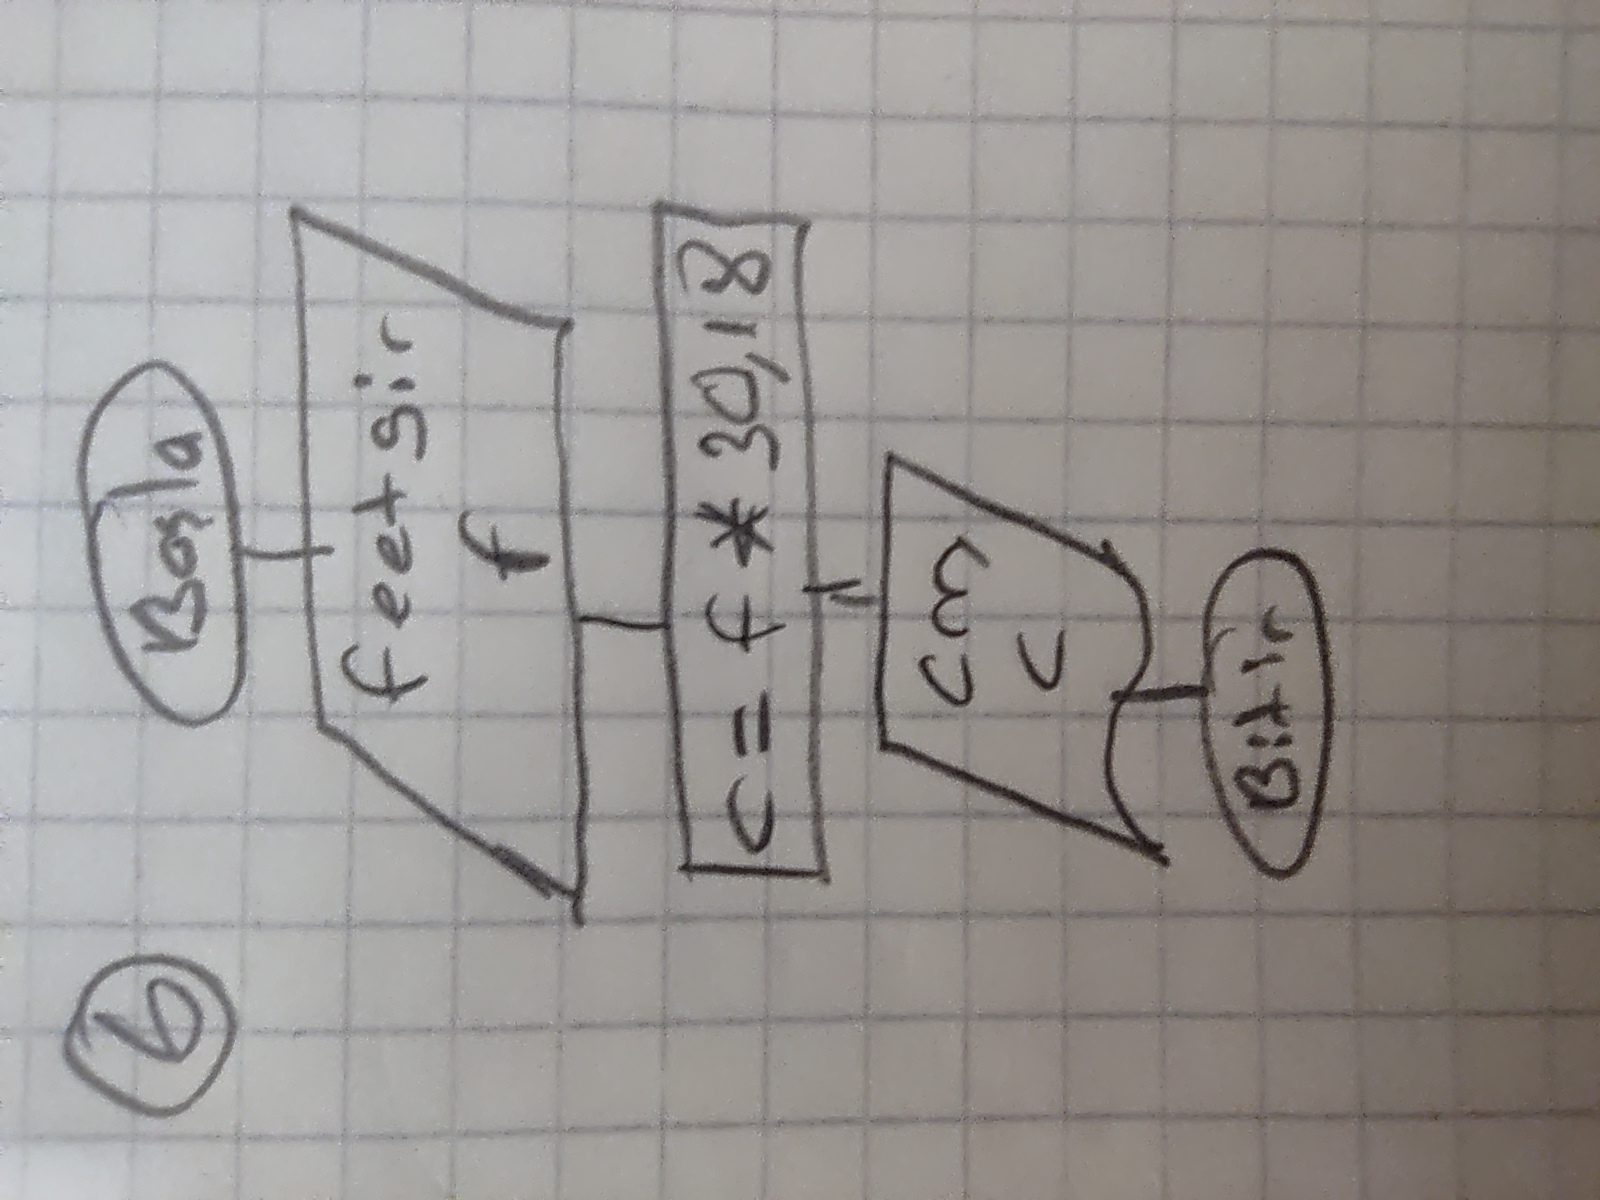 6
Başla
feet gir
f
c = f * 30,18
cm
c
Bitir